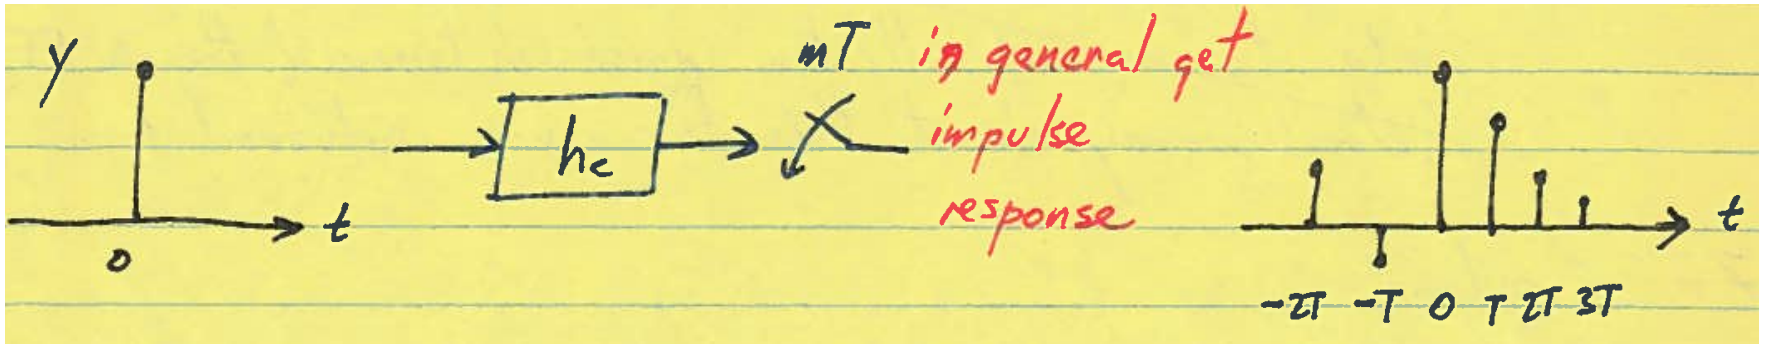 y
0
t
h_c
mT
in general get
impulse
response
t
-2T -T 0 T 2T 3T